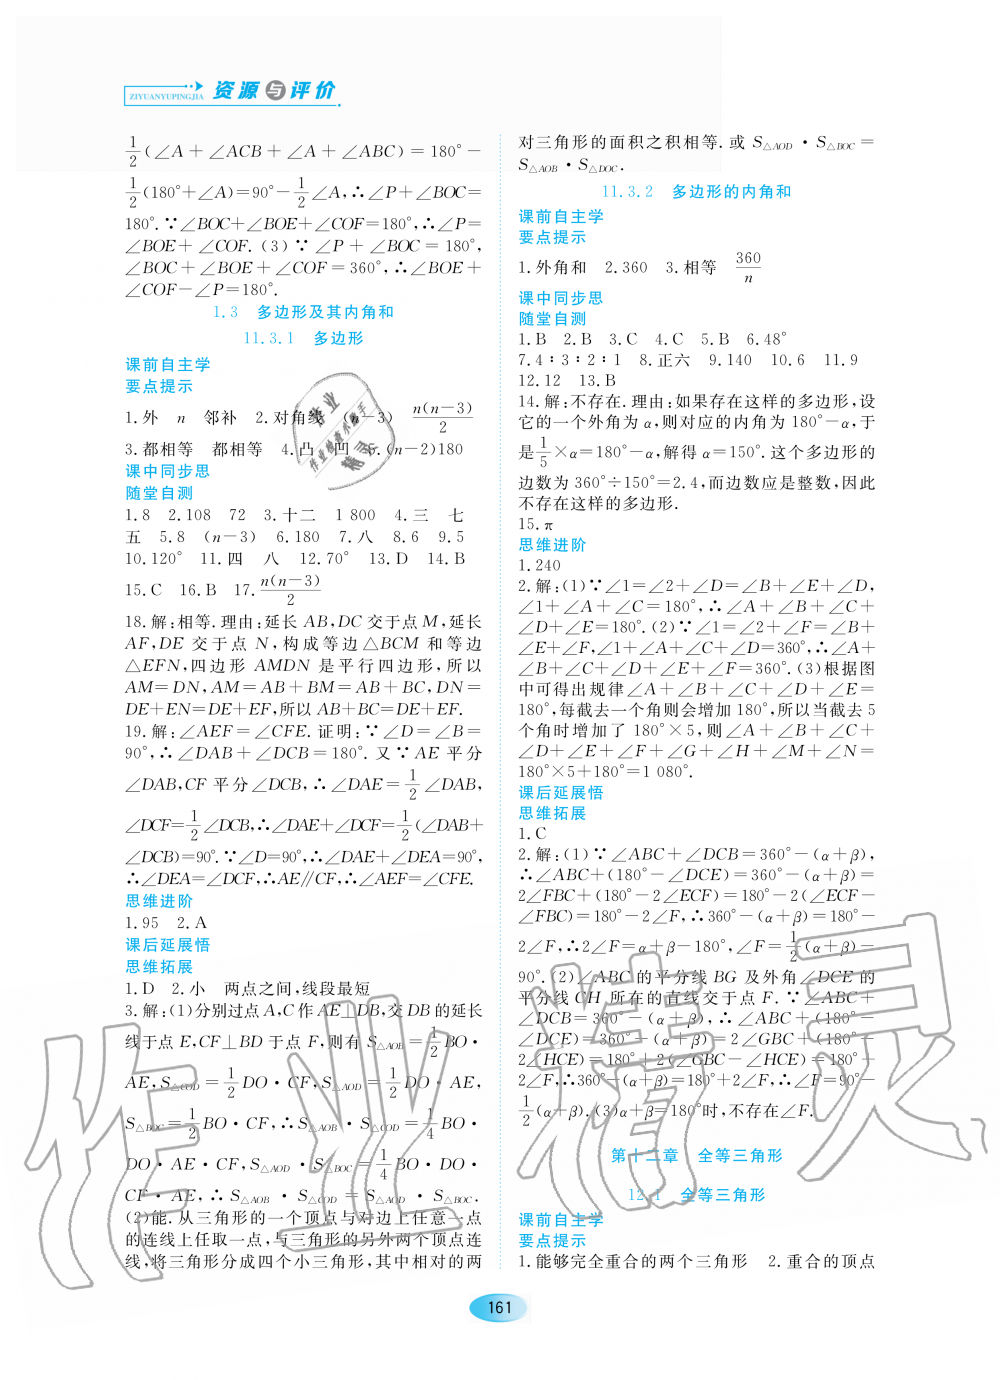 ZIYUANYUPINGJIA 资源与评价
1/2(∠A+∠ACB+∠A+∠ABC)=180°-
1/2(180°+∠A)=90°-1/2∠A,∴∠P+∠BOC=
180°.∵∠BOC+∠BOE+∠COF=180°,∴∠P=
∠BOE+∠COF.(3)∵∠P+∠BOC=180°,
∠BOC+∠BOE+∠COF=360°,∴∠BOE+
∠COF-∠P=180°.
1.3 多边形及其内角和
11.3.1 多边形
课前自主学
要点提示
1.外 n 邻补 2.对角线 (n-3) n(n-3)/2
3.都相等 都相等 4.凸 凹 5.(n-2)180
课中同步思
随堂自测
1.8 2.108 72 3.十二 1 800 4.三 七
五 5.8 (n-3) 6.180 7.八 8.6 9.5
10.120° 11.四 八 12.70° 13.D 14.B
15.C 16.B 17.n(n-3)/2
18.解:相等.理由:延长AB,DC交于点M,延长
AF,DE交于点N,构成等边△BCM和等边
△EFN,四边形AMDN是平行四边形,所以
AM=DN,AM=AB+BM=AB+BC,DN=
DE+EN=DE+EF,所以AB+BC=DE+EF.
19.解:∠AEF=∠CFE.证明:∵∠D=∠B=
90°,∴∠DAB+∠DCB=180°.又∵AE平分
∠DAB,CF平分∠DCB,∴∠DAE=1/2∠DAB,
∠DCF=1/2∠DCB,∴∠DAE+∠DCF=1/2(∠DAB+
∠DCB)=90°.∵∠D=90°,∴∠DAE+∠DEA=90°,
∴∠DEA=∠DCF,∴AE∥CF,∴∠AEF=∠CFE.
思维进阶
1.95 2.A
课后延展悟
思维拓展
1.D 2.小 两点之间,线段最短
3.解:(1)分别过点A,C作AE⊥DB,交DB的延长
线于点E,CF⊥BD于点F,则有S△AOB=1/2BO·
AE,S△COD=1/2DO·CF,S△AOD=1/2DO·AE,
S△BOC=1/2BO·CF,∴S△AOB·S△COD=1/4BO·
DO·AE·CF,S△AOD·S△BOC=1/4BO·DO·
CF·AE,∴S△AOB·S△COD=S△AOD·S△BOC.
(2)能.从三角形的一个顶点与对边上任意一点
的连线上任取一点,与三角形的另外两个顶点连
线,将三角形分成四个小三角形,其中相对的两
对三角形的面积之积相等.或S△AOD·S△BOC=
S△AOB·S△DOC.
11.3.2 多边形的内角和
课前自主学
要点提示
1.外角和 2.360 3.相等 360/n
课中同步思
随堂自测
1.B 2.B 3.C 4.C 5.B 6.48°
7.4∶3∶2∶1 8.正六 9.140 10.6 11.9
12.12 13.B
14.解:不存在.理由:如果存在这样的多边形,设
它的一个外角为α,则对应的内角为180°-α,于
是1/5×α=180°-α,解得α=150°.这个多边形的
边数为360°÷150°=2.4,而边数应是整数,因此
不存在这样的多边形.
15.π
思维进阶
1.240
2.解:(1)∵∠1=∠2+∠D=∠B+∠E+∠D,
∠1+∠A+∠C=180°,∴∠A+∠B+∠C+
∠D+∠E=180°.(2)∵∠1=∠2+∠F=∠B+
∠E+∠F,∠1+∠A+∠C+∠D=360°,∴∠A+
∠B+∠C+∠D+∠E+∠F=360°.(3)根据图
中可得出规律∠A+∠B+∠C+∠D+∠E=
180°,每截去一个角则会增加180°,所以当截去5
个角时增加了180°×5,则∠A+∠B+∠C+
∠D+∠E+∠F+∠G+∠H+∠M+∠N=
180°×5+180°=1 080°.
课后延展悟
思维拓展
1.C
2.解:(1)∵∠ABC+∠DCB=360°-(α+β),
∴∠ABC+(180°-∠DCE)=360°-(α+β)=
2∠FBC+(180°-2∠ECF)=180°-2(∠ECF-
∠FBC)=180°-2∠F,∴360°-(α+β)=180°-
2∠F,∴2∠F=α+β-180°,∠F=1/2(α+β)-
90°.(2)∠ABC的平分线BG及外角∠DCE的
平分线CH所在的直线交于点F.∵∠ABC+
∠DCB=360°-(α+β),∴∠ABC+(180°-
∠DCE)=360°-(α+β)=2∠GBC+(180°-
2∠HCE)=180°+2(∠GBC-∠HCE)=180°+
2∠F,∴360°-(α+β)=180°+2∠F,∴∠F=90°-
1/2(α+β).(3)α+β=180°时,不存在∠F.
第十二章 全等三角形
12.1 全等三角形
课前自主学
要点提示
1.能够完全重合的两个三角形 2.重合的顶点
161
作业精灵